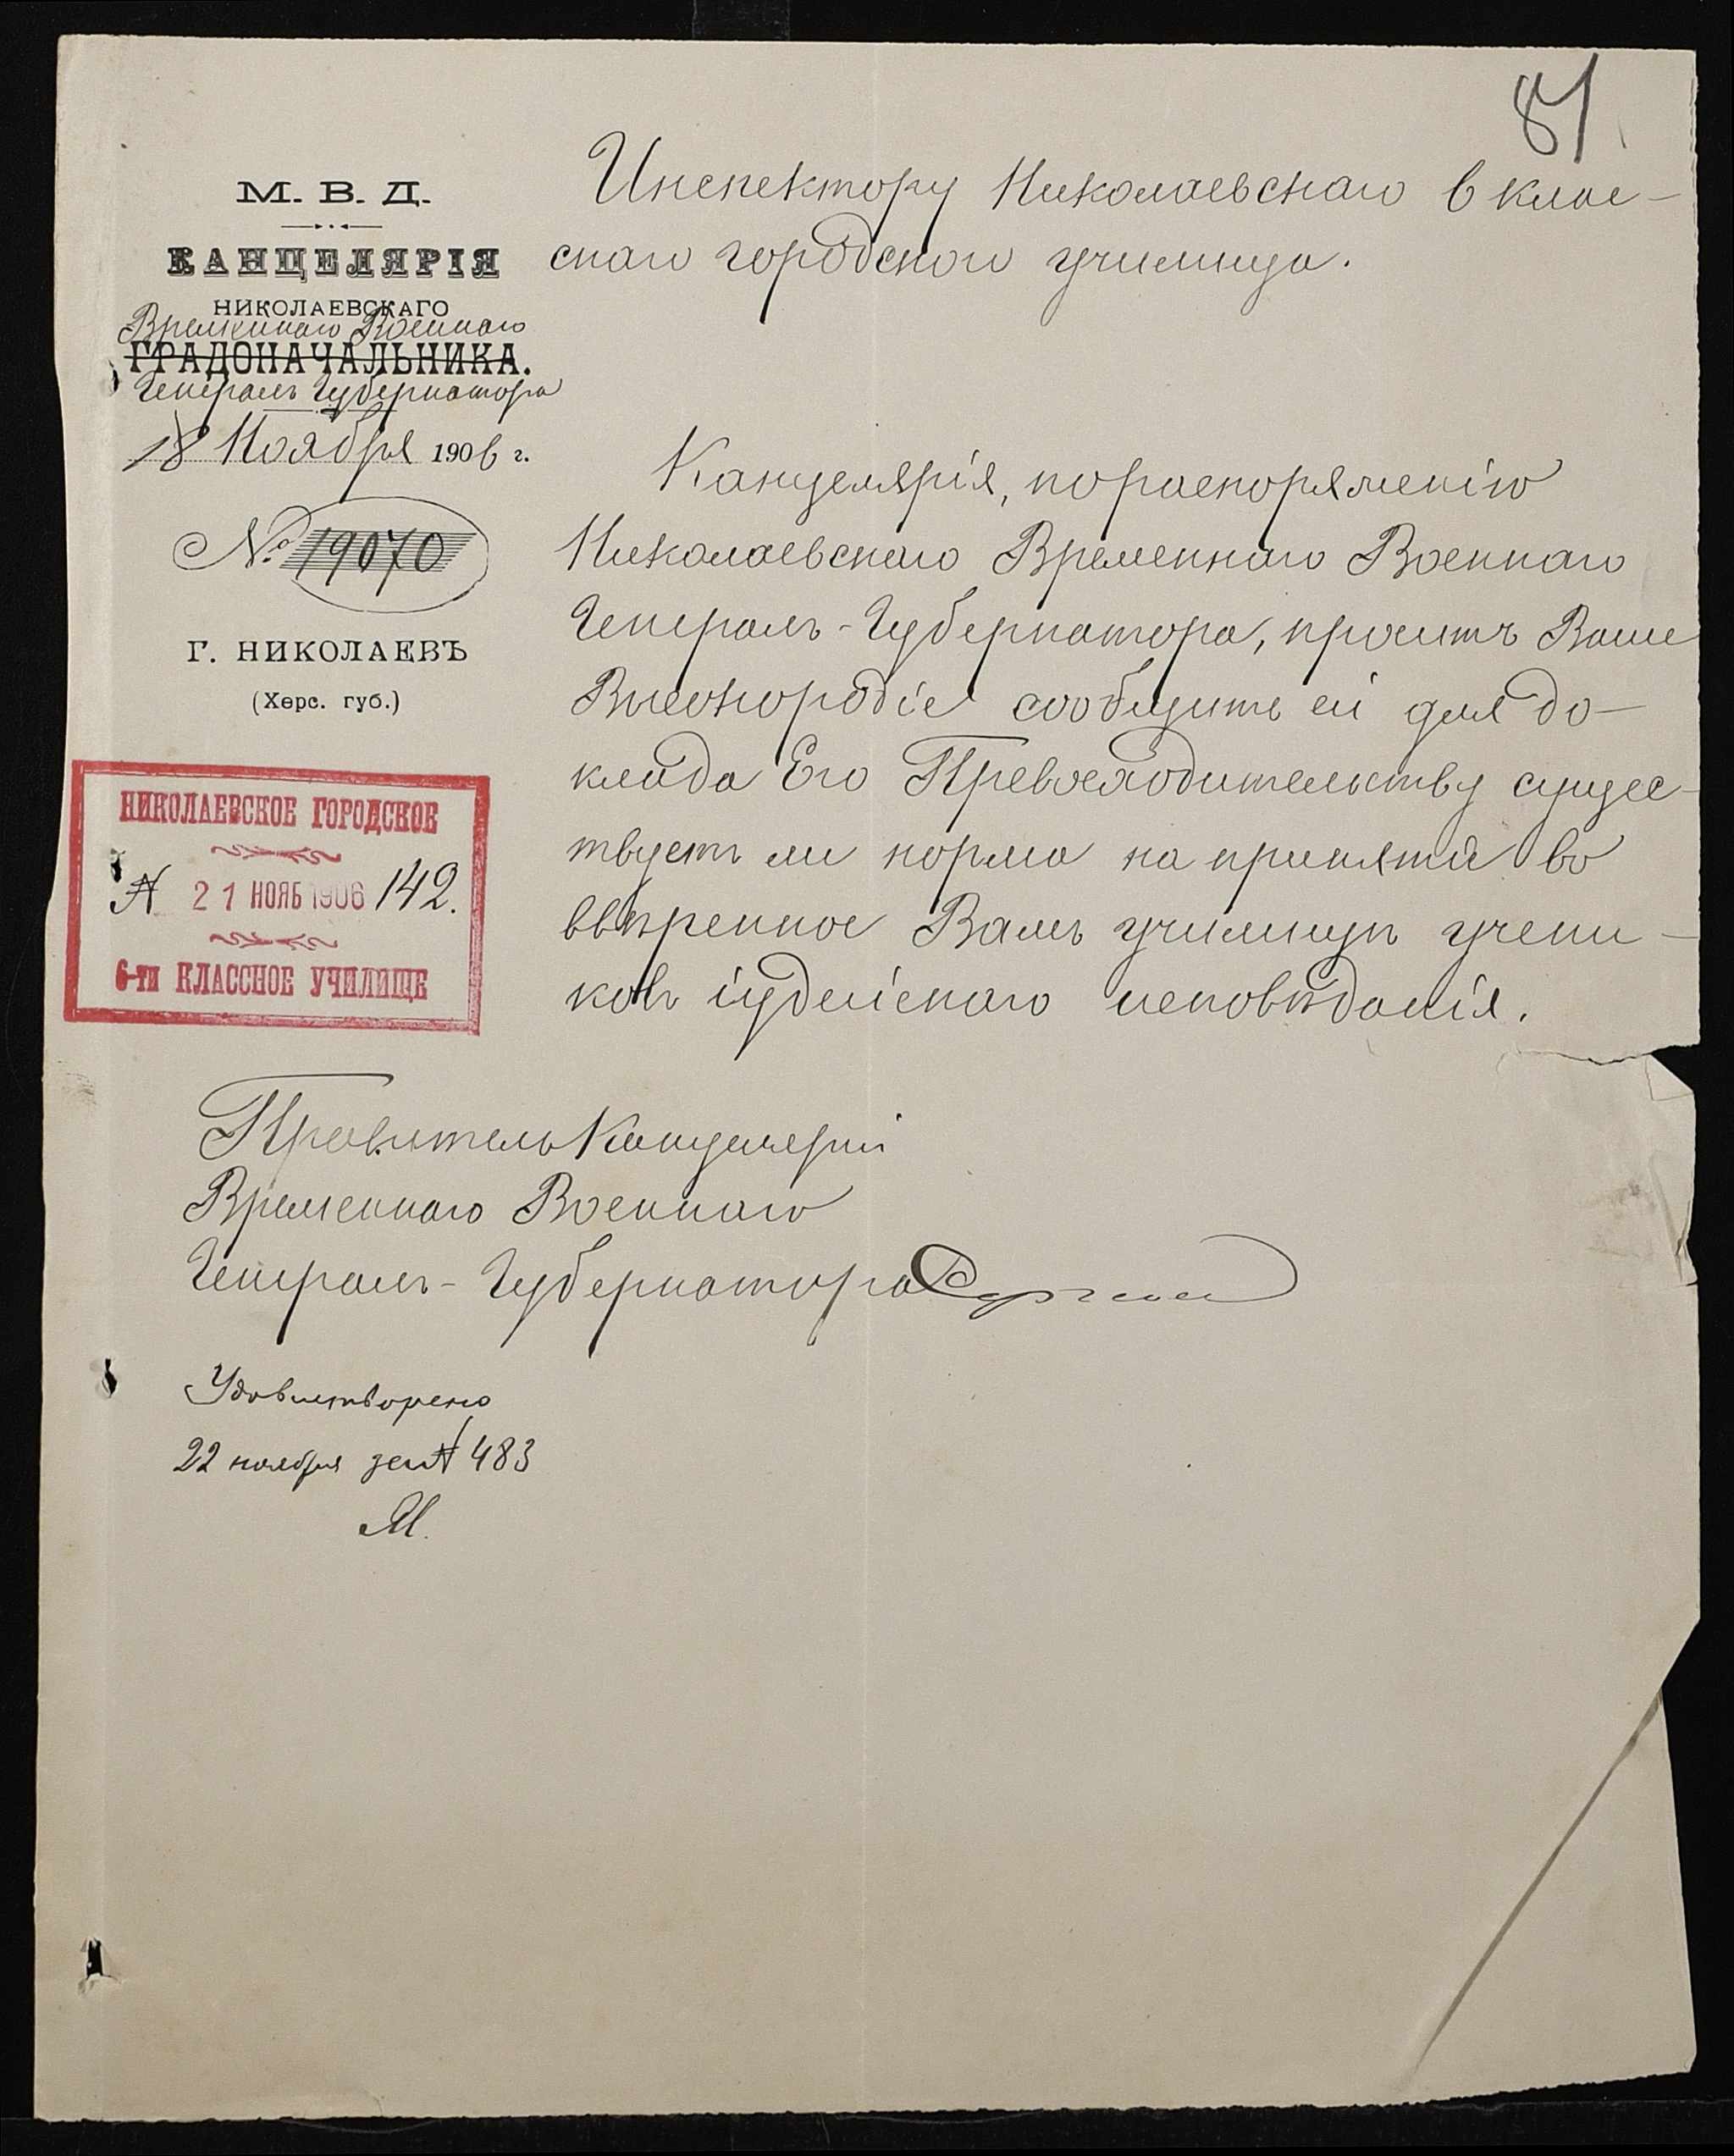 81
М. В. Д.
КАНЦЕЛЯРІЯ
НИКОЛАЕВСКАГО
Временнаго Военнаго
ГРАДОНАЧАЛЬНИКА.
Генералъ Губернатора
18 Ноября 1906 г.
№ 19070
Г. НИКОЛАЕВЪ
(Херс. губ.)
НИКОЛАЕВСКОЕ ГОРОДСКОЕ
№ 21 НОЯБ 1906 142.
6-ти КЛАССНОЕ УЧИЛИЩЕ
Инспектору Николаевскаго 6 клас-
снаго городского училища.
Канцелярія, по распоряженію
Николаевскаго Временнаго Военнаго
Генералъ-Губернатора, проситъ Ваше
Высокородіе сообщить ей для до-
клада Его Превосходительству сущес-
твуетъ ли норма на принятіе во
ввѣренное Вамъ училище учени-
ковъ іудейскаго исповѣданія.
Правитель Канцеляріи
Временнаго Военнаго
Генералъ-Губернатора
Удовлетворено
22 ноября за № 483
М.